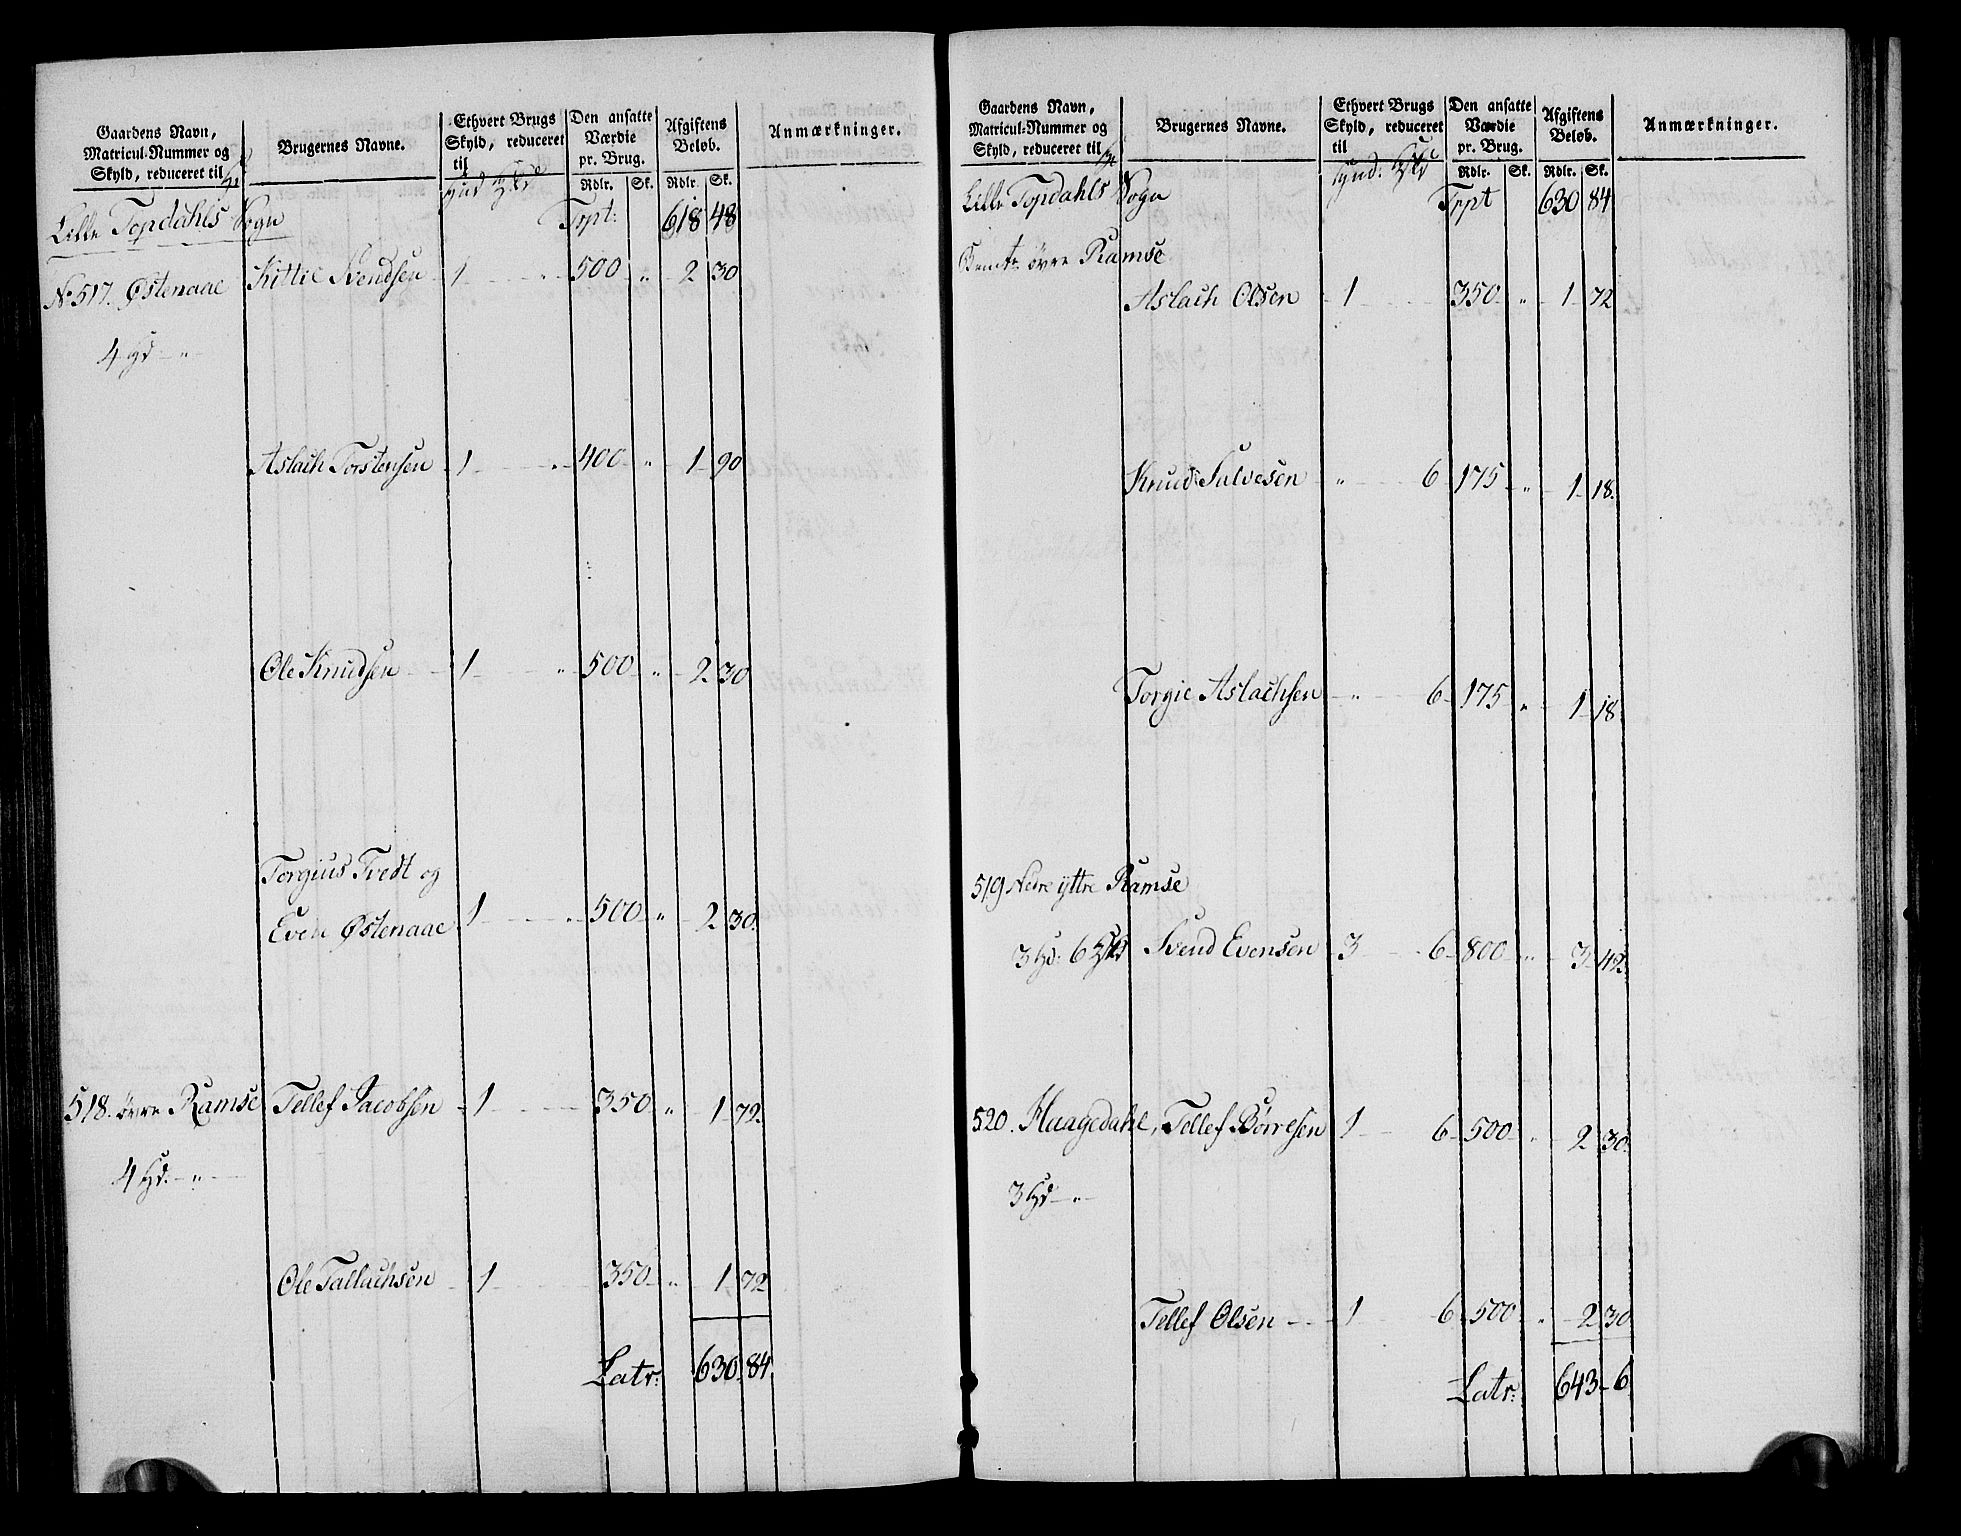 Gaardens Navn,
Matricul-Nummer og
Skyld, reduceret til
Brugernes Navne.
Ethvert Brugs
Skyld, reduceret
til
Den ansatte
Værdie
pr. Brug.
Rdlr. Sk.
Afgiftens
Beløb.
Rdlr. Sk.
Anmærkninger.
Lille Topdahls Sogn Trpt: 618 48
No 517. Østenaae Kittil Svendsen 1 " 500 " 2 30
4 Hd - " -
Aslach Torstensen 1 " 400 " 1 90
Ole Knudsen 1 " 500 " 2 30
Torgius Tvedt og
Even Østenaae 1 " 500 " 2 30.
518. øvre Ramse Tellef Jacobsen 1 350 " 1 72
4 Hd. - " -
Ole Tallachsen 1 350 " 1 72
Latr: 630. 84.
Gaardens Navn,
Matricul-Nummer og
Skyld, reduceret til
Brugernes Navne.
Ethvert Brugs
Skyld, reduceret
til
Den ansatte
Værdie
pr. Brug.
Rdlr. Sk.
Afgiftens
Beløb.
Rdlr. Sk.
Anmærkninger.
Lille Topdahls Sogn Trpt 630 84
øvre Ramse
Aslach Olsen 1 350 " 1 72
Knud Salvesen " 6 175 " 1 18.
Torgie Aslachsen " 6 175 " 1 18
519 Nedre yttre Ramse
3 Hd: 6 Svend Evensen 3 6 800 " 3 42.
520. Haagedahl, Tellef Børresen 1 6 500 " 2 30.
3 Hd - " -
Tellef Olsen 1 6 500 " 2 30
Latr: 643 6.